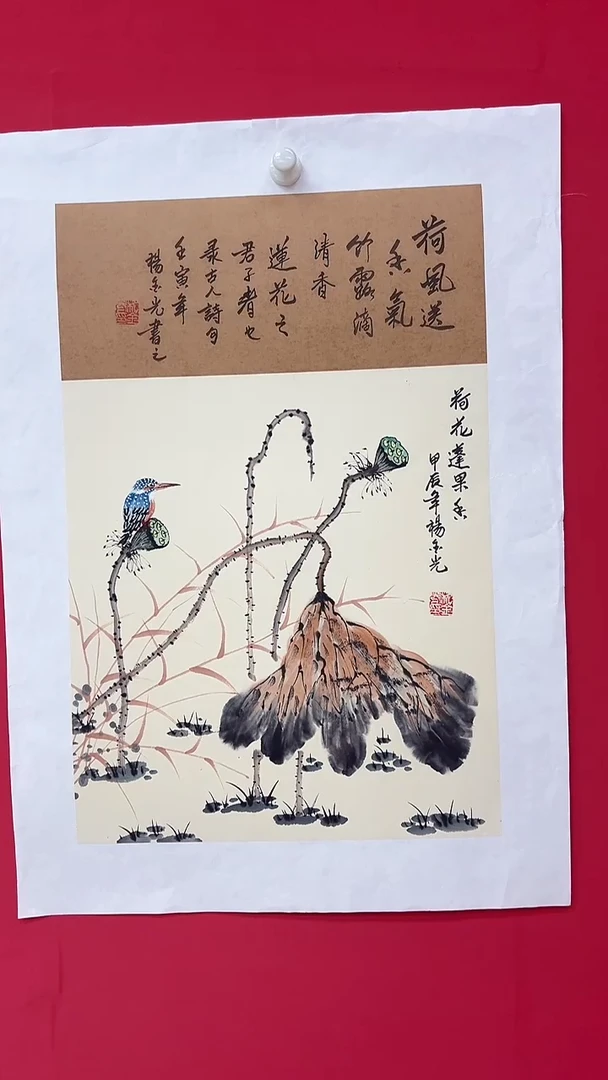 荷風送
香氣
竹露滴
清香
蓮花之
君子者也
录古人詩句
壬寅年
楊金光書之
荷花蓬果香
甲辰年楊金光